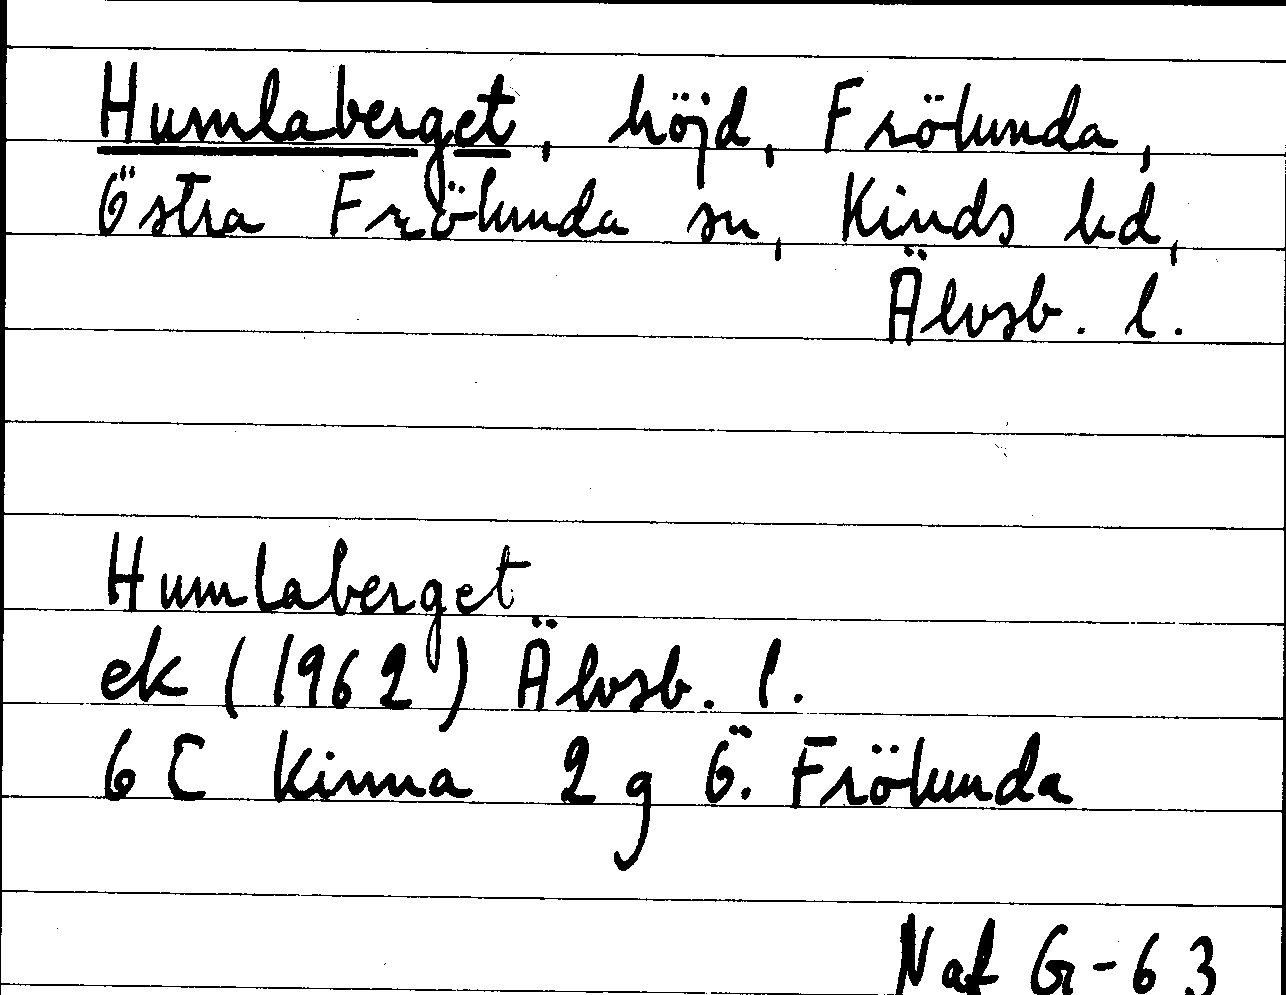 Humlaberget, höjd, Frölunda,
Östra Frölunda sn, Kinds hd,
Älvsb. l.
Humlaberget
ek (1962) Älvsb. l.
6 C Kinna 2 g Ö. Frölunda
Naf G-63